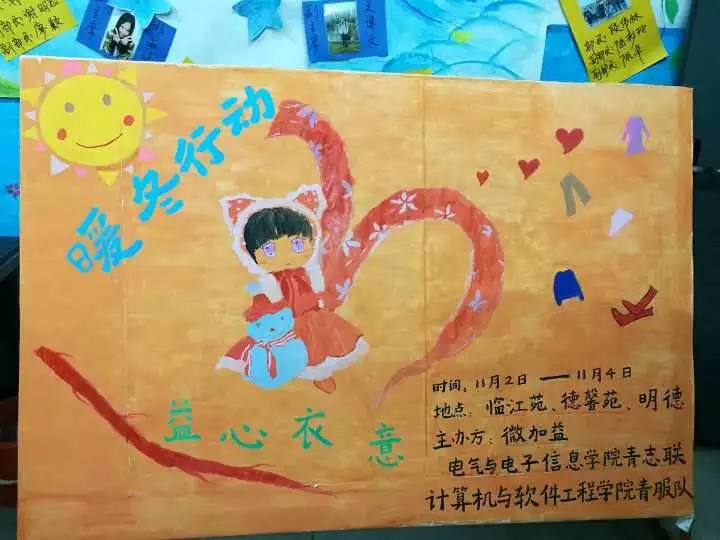 暖冬行动
益心衣意
时间：11月2日——11月4日
地点：临江苑、德馨苑、明德
主办方：微加益
电气与电子信息学院青志联
计算机与软件工程学院青服队